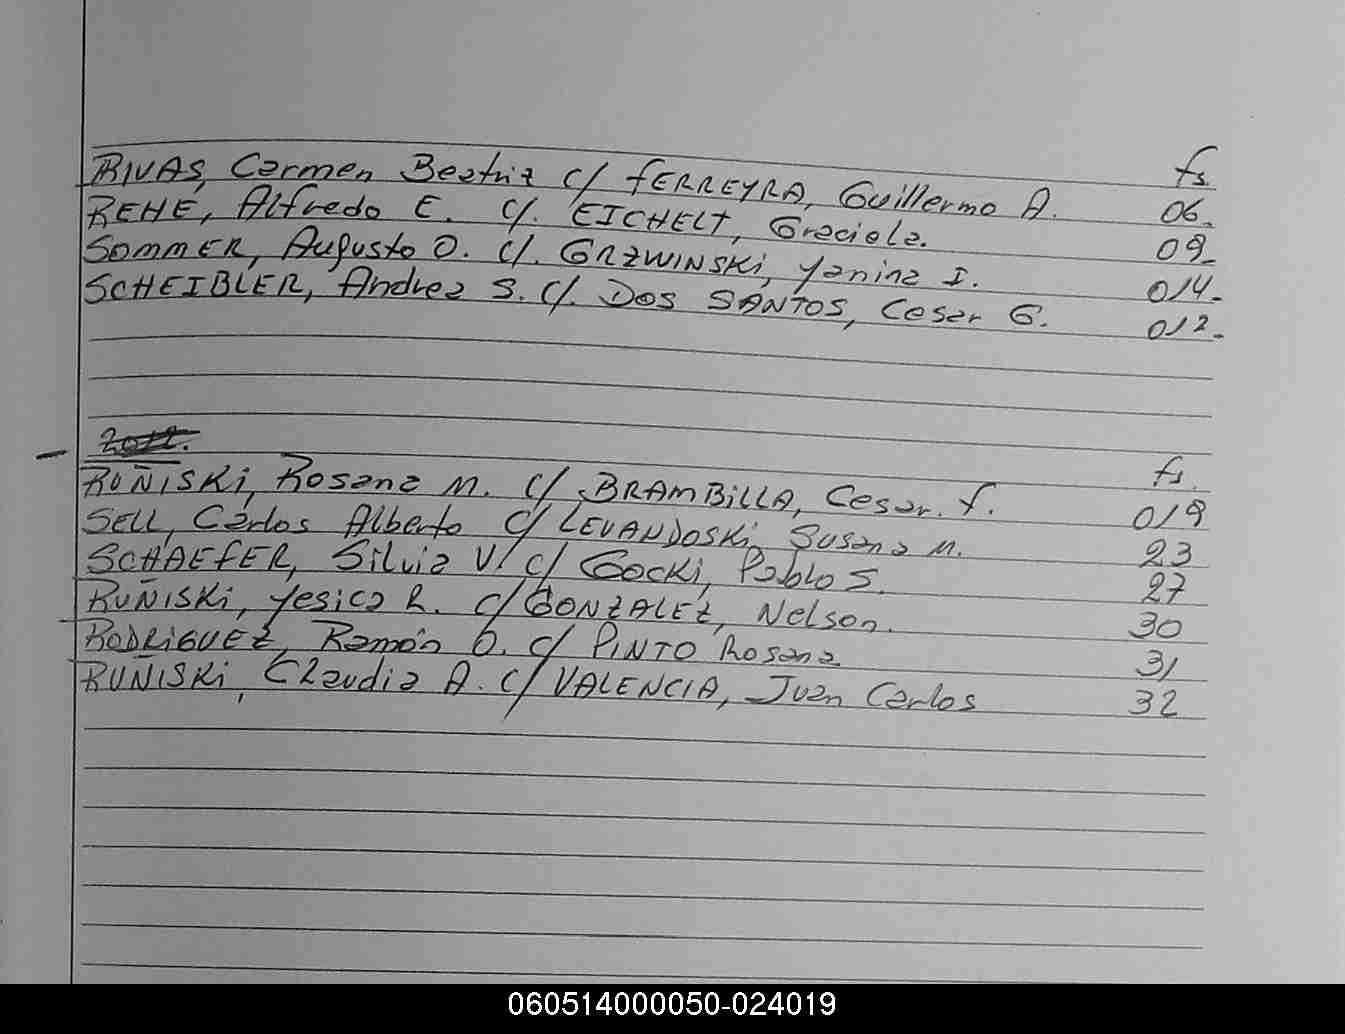 fs.
RIVAS, Carmen Beatriz c/ FERREYRA, Guillermo A. 06.
REHE, Alfredo E. c/. EICHELT, Graciela. 09.
SOMMER, Augusto O. c/. GRZWINSKi, Yanina I. 014.
SCHEIBLER, Andrea S. c/. DOS SANTOS, Cesar G. 012.
fs.
RUÑISKi, Rosana M. c/ BRAMBiLLA, Cesar. F. 019
SELL, Carlos Alberto c/ LEVANDOSKi, Susana M. 23
SCHAEFER, Silvia V. c/ GOCKi, Pablo S. 27
RUÑISKi, Yesica R. c/ GONZALEZ, Nelson. 30
RODRiGUEZ, Ramón O. c/ PINTO Rosana. 31
RUÑISKi, Claudia A. c/ VALENCIA, Juan Carlos 32
060514000050-024019